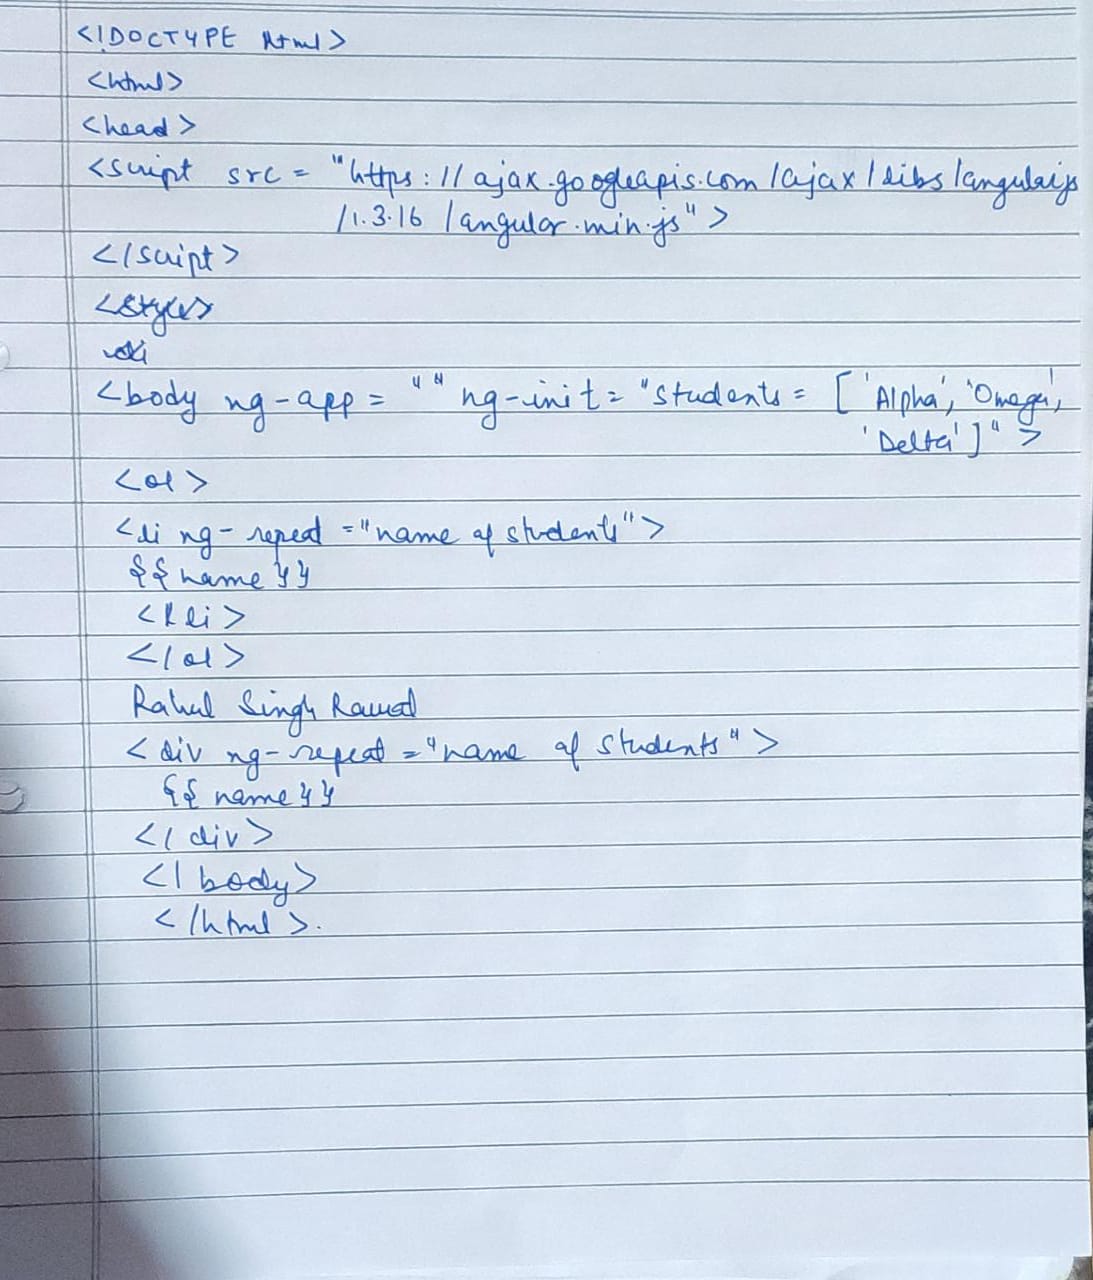 <!DOCTYPE html>
<html>
<head>
<script src = "https://ajax.googleapis.com/ajax/libs/angularjs
/1.3.16/angular.min.js">
</script>
<style>
<body ng-app = "" ng-init = "students = ['Alpha', 'Omega',
'Delta']" >
<ol>
<li ng-repeat = "name of students">
{{name}}
</li>
</ol>
Rahul Singh Rawat
<div ng-repeat = "name of students" >
{{name}}
</div>
</body>
</html>.